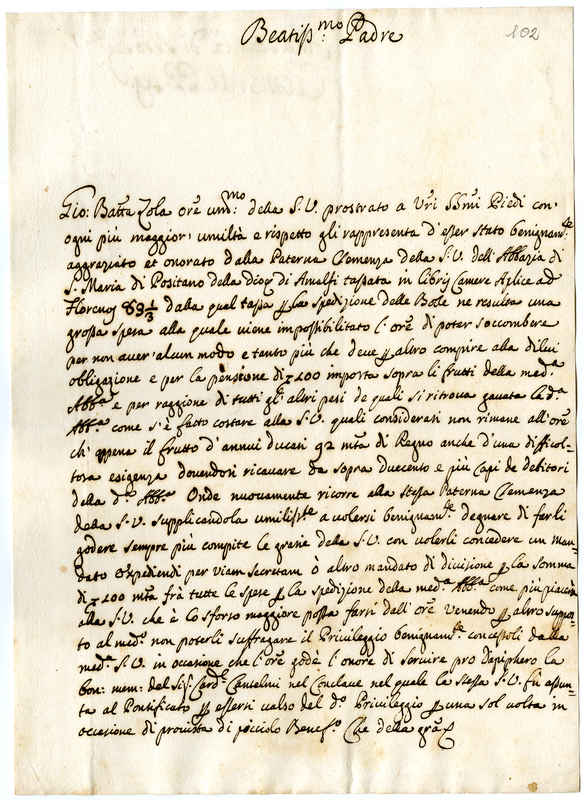 Beatiss.mo Padre
102
Gio: Batta Zola ore um.mo della S. V. prostrato a Vri SSmi Piedi con
ogni più maggior umiltà e rispetto gli rappresenta d'esser stato benignam.te
aggraziato et onorato dalla Paterna Clemenza della S. V. dell'Abbazia di
S. Maria di Positano della dioc. di Amalfi tassata in libris Camere Aplice ad
Florenos 89 1/3 dalla qual tassa p la spedizione delle Bolle ne resulta una
grossa spesa alla quale viene impossibilitato l'ore di poter soccombere
per non aver'alcun modo e tanto più che deve p altro compire alla di lui
obligazione e per la pensione di 100 importa sopra li frutti della med.a
Abb.a e per raggione di tutti gl'altri pesi de quali si ritrova gravata la d.a
Abb.a come s'è fatto costare alla S. V. quali considerati non rimane all'ore
ch'appena il frutto d'annui ducati 92 mta di Regno anche d'una difficol-
tosa esigenza dovendosi ricavare da sopra duecento e più capi de debitori
della d.a Abb.a Onde nuovamente ricorre alla stessa Paterna Clemenza
della S. V. supplicandola umiliss.te a volersi benignam.te degnare di farli
godere sempre più compite le grazie della S. V. con volerli concedere un man-
dato expediendi per viam secretam ò altro mandato di divisione p la somma
di 100 mta frà tutte le spese p la spedizione della med.a Abb.a come più piacerà
alla S. V. che è lo sforzo maggiore possa farsi dall'ore venendo p altro suppos-
to al med.o non poterli suffragare il Privileggio benignam.te concessoli dalla
med.a S. V. in occasione che l'ore godè l'onore di servire pro Dapiphero la
bon: mem: del Sig. Card. Cantelmi nel Conclave nel quale la stessa S. V. fù assun-
ta al Pontificato p essersi valso del d.o Privileggio p una sol volta in
occasione di provista di picciolo Benef.o Che della gra